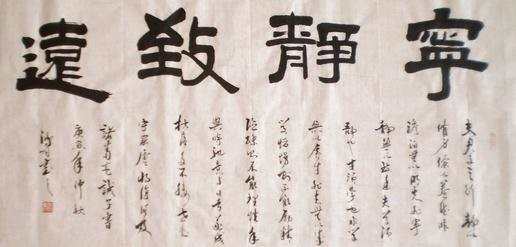 寧靜致遠
夫君子之行靜以
脩身儉以養德非
澹泊無以明志非寧
靜無以致遠夫學須
靜也才須學也非學
無以廣才非志無以成
學慆慢則不能勵精
險躁則不能理性年
與時馳意與歲去遂成
枯落多不接世悲
守窮廬將復何及
諸葛亮誡子書
庚年仲秋
書